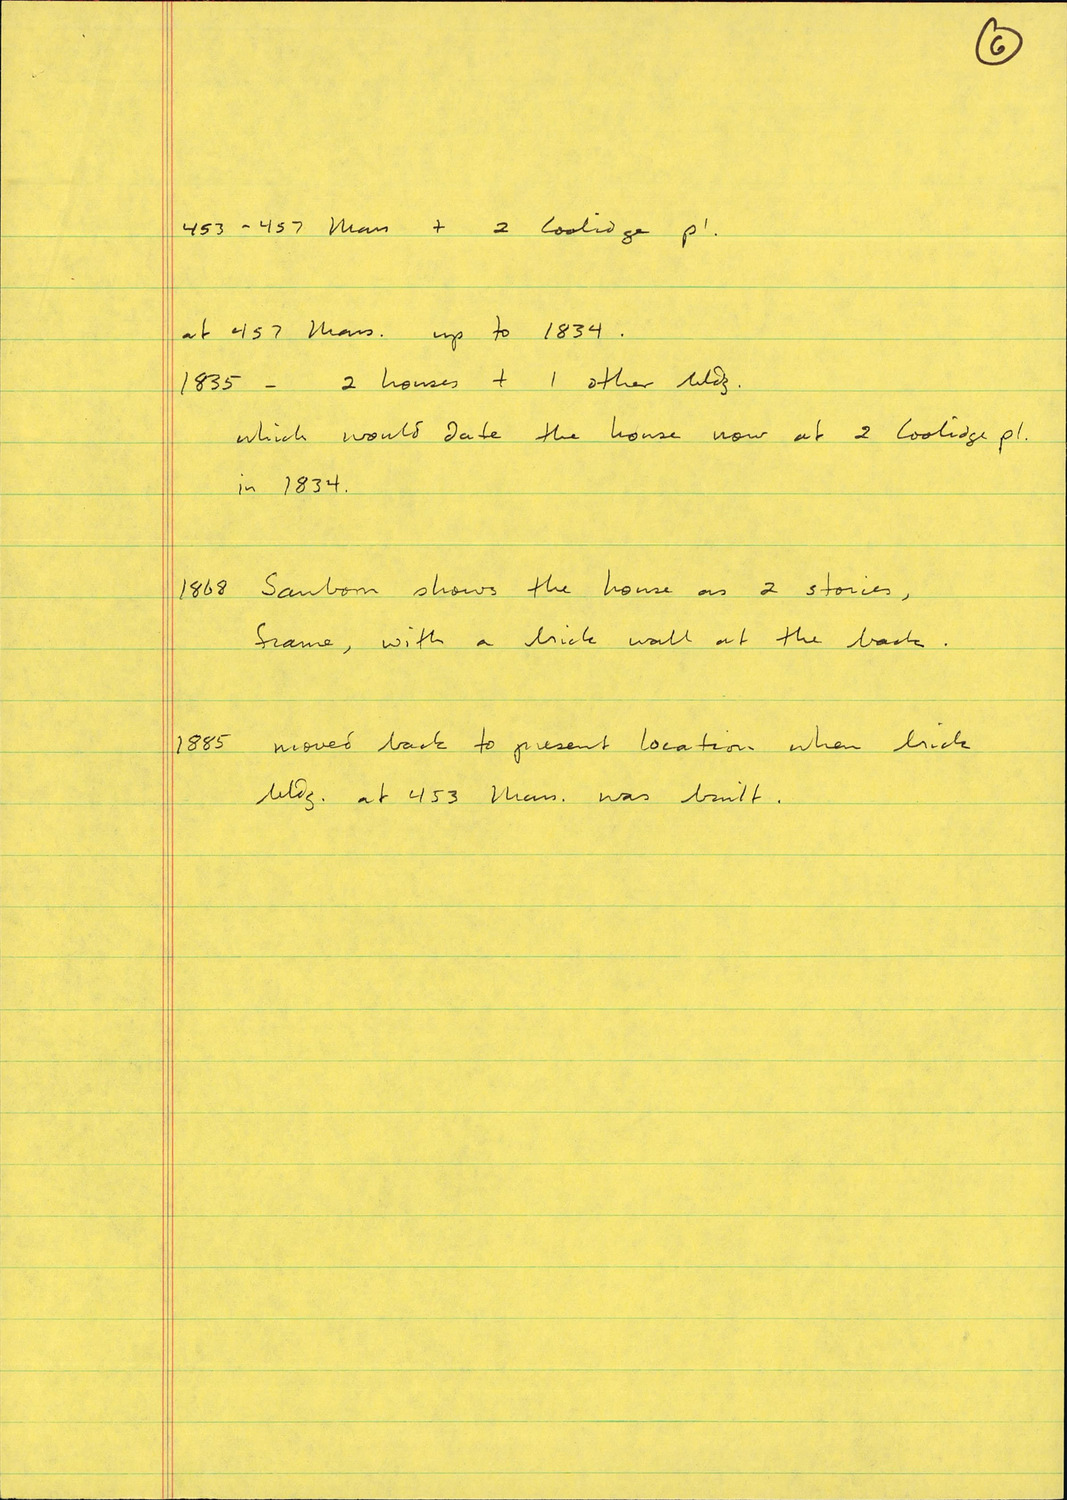 6
453-457 Mass + 2 Coolidge pl.
at 457 Mass. up to 1834.
1835 - 2 houses + 1 other bldg.
which would date the house now at 2 Coolidge pl.
in 1834.
1868 Sanborn shows the house as 2 stories,
frame, with a brick wall at the back.
1885 moved back to present location when brick
bldg. at 453 Mass. was built.